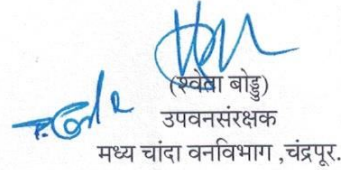 (श्वेता बोड्डु)
उपवनसंरक्षक
मध्य चांदा वनविभाग ,चंद्रपूर.